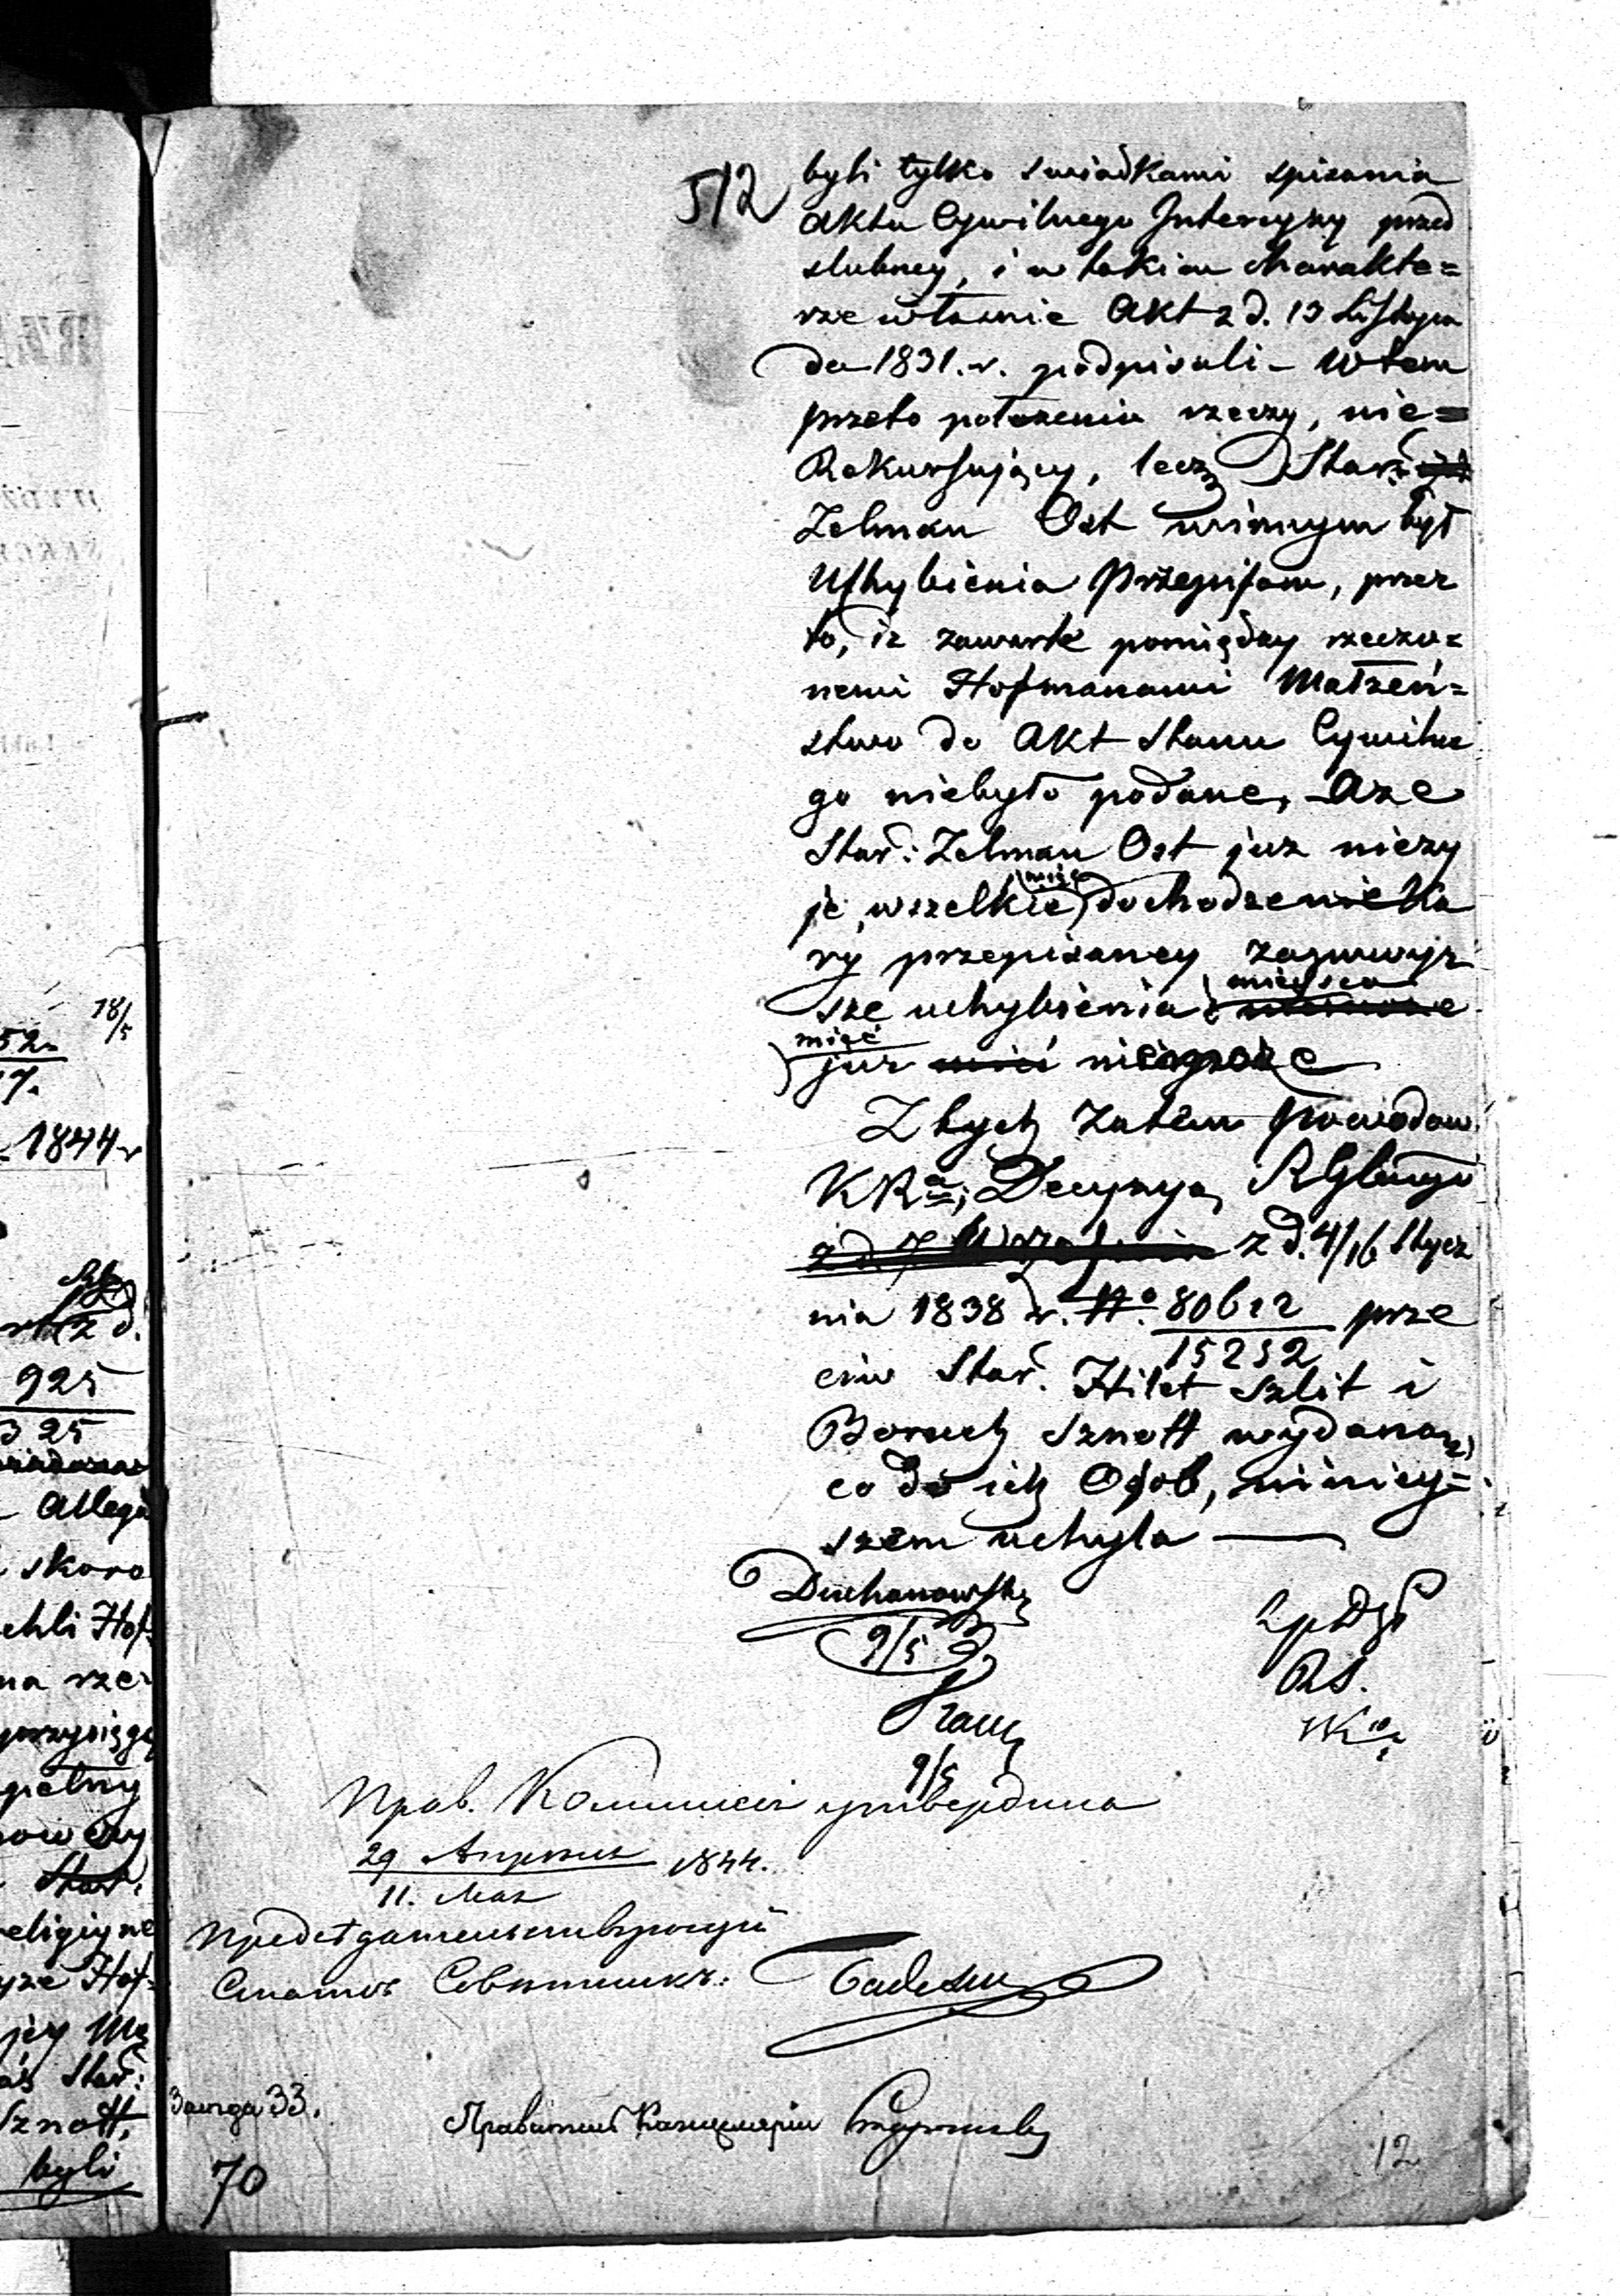 512
byli tylko swiadkami spisania
aktu Cywilnego Intercyzy przed
slubney, i w takim Charakte=
rze własnie Akt z d. 13 Listopa
da 1831. r. podpisali - W tem
przeto położeniu rzeczy, nie=
Rekursujący, lecz Star:
Zelman Ost winnym był
Uchybienia Przepisom, przez
to, iz zawarte pomiędzy rzeczo=
nemi Hofmanami Małzeń=
stwo do Akt Stanu Cywilne
go niebyło podane, Aze
Star: Zelman Ost juz niezy
je, wszelkie więc dochodzenie Ka
ry przepisaney za powyz
sze uchybienia miejsca
mieć
juz nie może
Z tych zatem Powodow
KRa; Decyzya RGlnego
z d. 4/16 Stycz
nia 1838 r. No. 80612 prze
15252
ciw Star. Hilet Szlit i
Boruch Sznott wydaną,
co do ich Osob, niniey=
szem uchyla
Duchanowski
9/5
RS.
9/5
Прав. Коммисія утвердила
29 Апреля 1844.
11. Мая
Председательствующій
Статс Советникъ:
33.
Правитель Канцеляріи
70
12
18/5
52
17.
1844 r
z d.
925
325
Allega
skoro
chli Hof-
na rze-
przysięgę
pełny
Star:
religijne
yze Hof-
jey Mę
aś Star:
Sznott,
byli